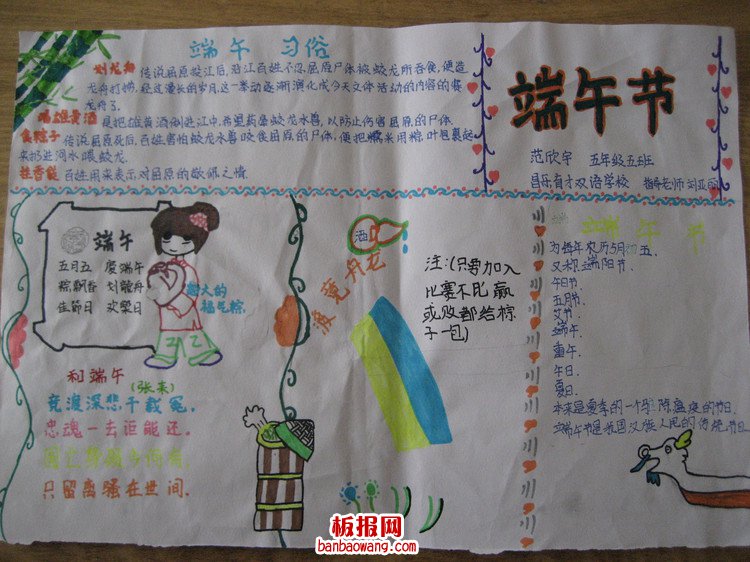 端午 习俗
划龙舟 传说屈原投江后,沿江百姓不忍屈原尸体被蛟龙所吞食,便造
龙舟打捞,经过漫长的岁月,这一举动逐渐演化成今天文体活动的内容的赛
龙舟了.
喝雄黄酒 是把雄黄酒倒进江中,希望药晕蛟龙水兽,以防止伤害屈原的尸体.
食粽子 传说屈原死后,百姓害怕蛟龙水兽咬食屈原的尸体,便把糯米用粽叶包裹起
来扔进河水喂蛟龙.
挂香袋 百姓用来表示对屈原的敬仰之情.
端午节
范欣宇 五年级五班
昌乐育才双语学校 指导老师 刘亚
端午
五月五 庆端午
粽飘香 划龙舟
佳节日 欢聚日
超大的
福气粽.
和端午
(张耒)
竞渡深悲千载冤,
忠魂一去讵能还.
国亡身殒今何有,
只留离骚在世间.
酒
龙舟竞渡
注:(只要加入
比赛不比赢
或败都给粽
子一包)
端午节
为每年农历5月初五.
又称端阳节.
午日节.
五月节.
艾节.
端午.
重午.
午日.
夏日.
本来是夏季的一个驱除瘟疫的节日.
端午节是我国汉族人民的传统节日.
板报网
banbaowang.com